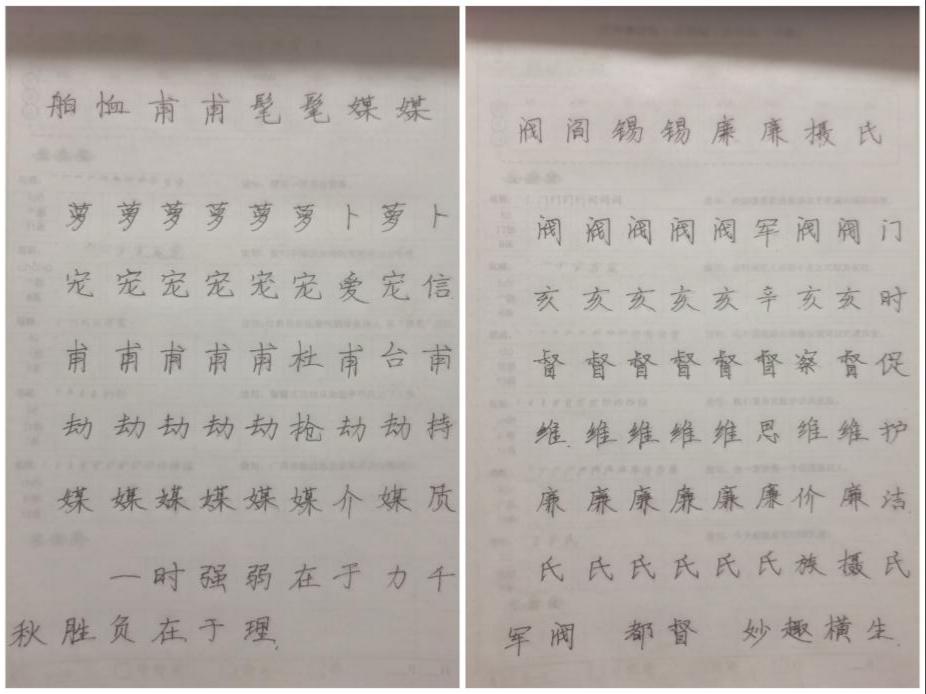 舶 恤 甫 甫 髦 髦 媒 媒
萝 萝 萝 萝 萝 萝 卜 萝 卜
宠 宠 宠 宠 宠 宠 爱 宠 信
甫 甫 甫 甫 甫 杜 甫 台 甫
劫 劫 劫 劫 劫 抢 劫 劫 持
媒 媒 媒 媒 媒 媒 介 媒 质
一 时 强 弱 在 于 力 千
秋 胜 负 在 于 理.
阀 阎 锡 锡 廉 廉 摄 氏
阀 阀 阀 阀 阀 军 阀 阀 门
亥 亥 亥 亥 亥 辛 亥 亥 时
督 督 督 督 督 督 察 督 促
维 维 维 维 维 思 维 维 护
廉 廉 廉 廉 廉 廉 价 廉 洁
氏 氏 氏 氏 氏 氏 族 摄 氏
军 阀 都 督 妙 趣 横 生.